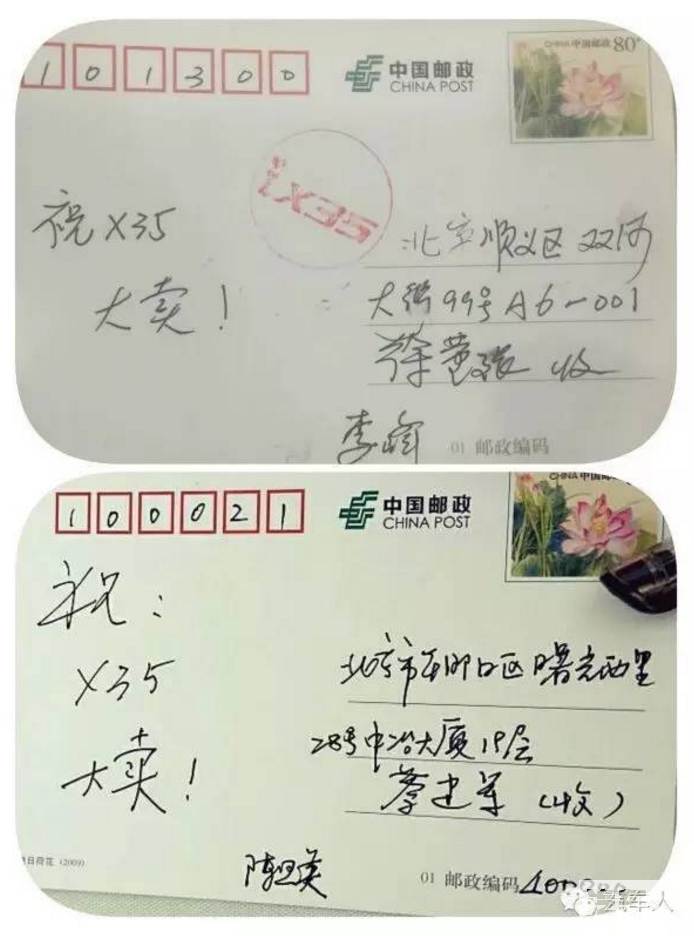 101300
中国邮政
CHINA POST
CHINA 中国邮政 80
ix35
祝 X35
大卖！
北京顺义区双河
大街99号A6-001
收
李峰
01 邮政编码
100021
中国邮政
CHINA POST
CHINA 中国邮政
祝：
X35
大卖！
北京市朝阳区曙光西里
28号中冶大厦19层
蔡建军（收）
01 邮政编码
荷花 (2009)